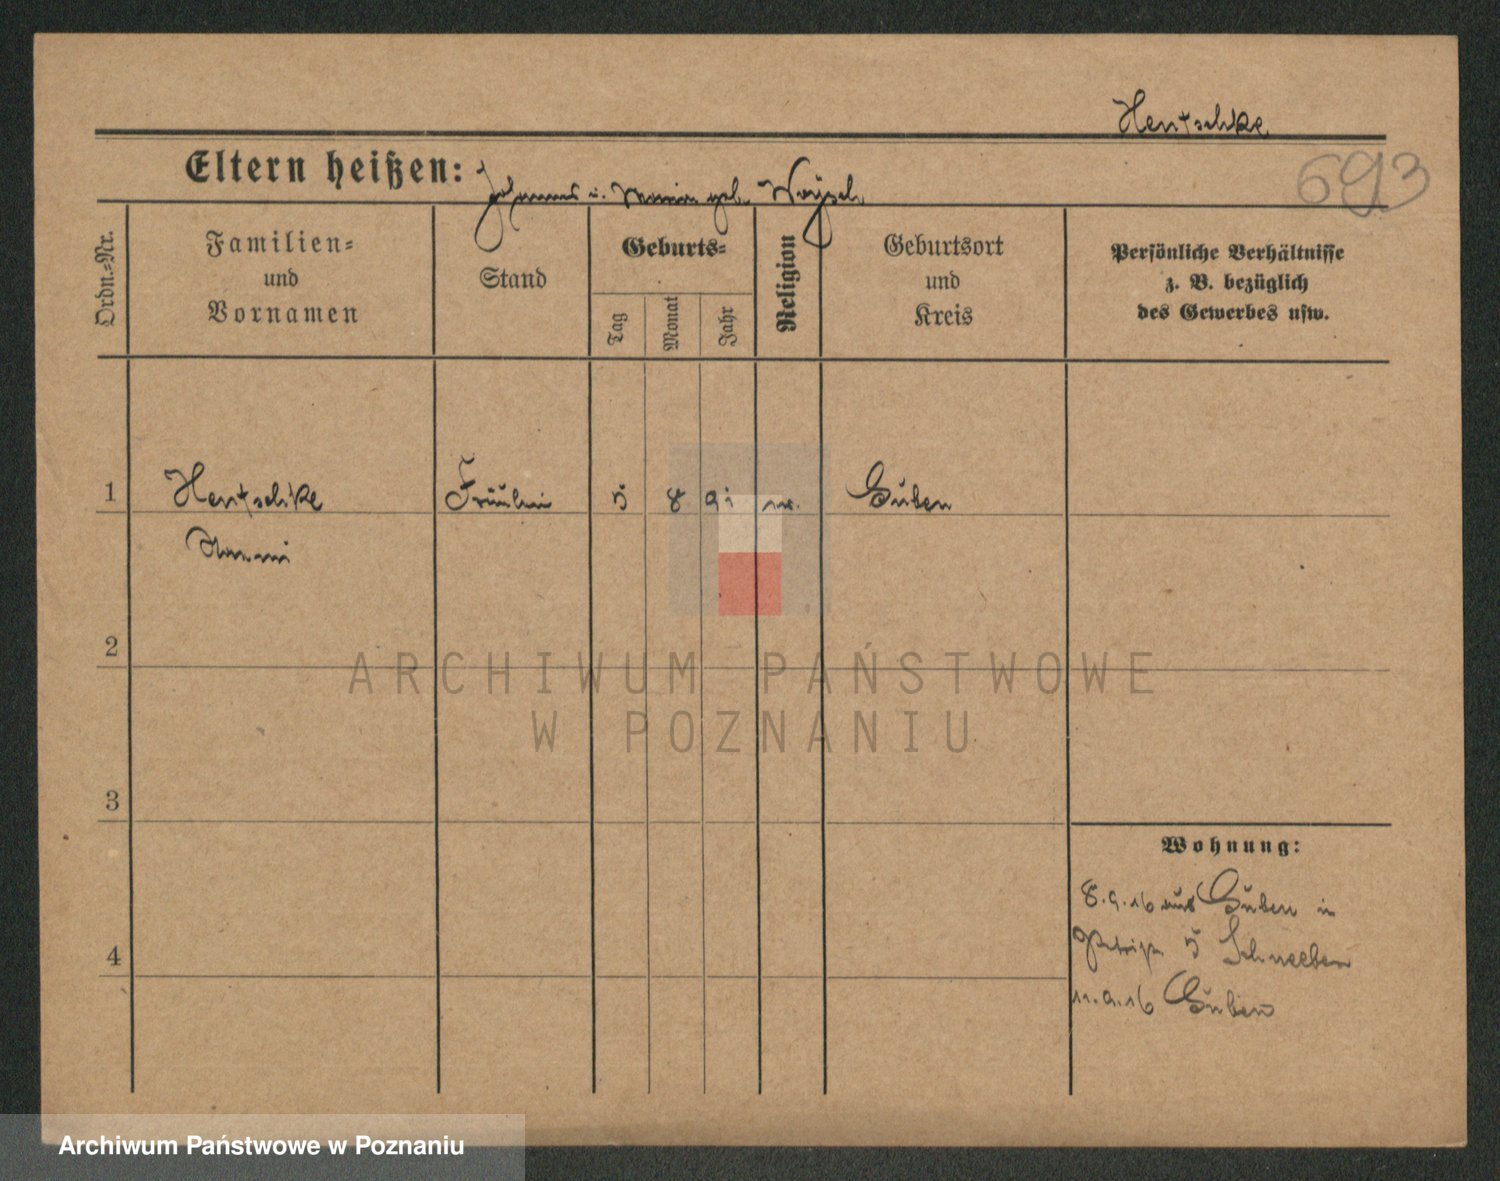 Hentschke
693
Eltern heißen: Johannes u. Maria geb.
Ordn.-Nr.
Familien-
und
Vornamen
Stand
Geburts-
Tag
Monat
Jahr
Religion
Geburtsort
und
Kreis
Persönliche Verhältnisse
z. B. bezüglich
des Gewerbes usw.
1 Hentschke Fräulein 5 8 91 Guben
2
3
4
Wohnung:
8.9.16 aus Guben in
5 Schneeben
11.9.16 Guben
ARCHIWUM PAŃSTWOWE
W POZNANIU
Archiwum Państwowe w Poznaniu